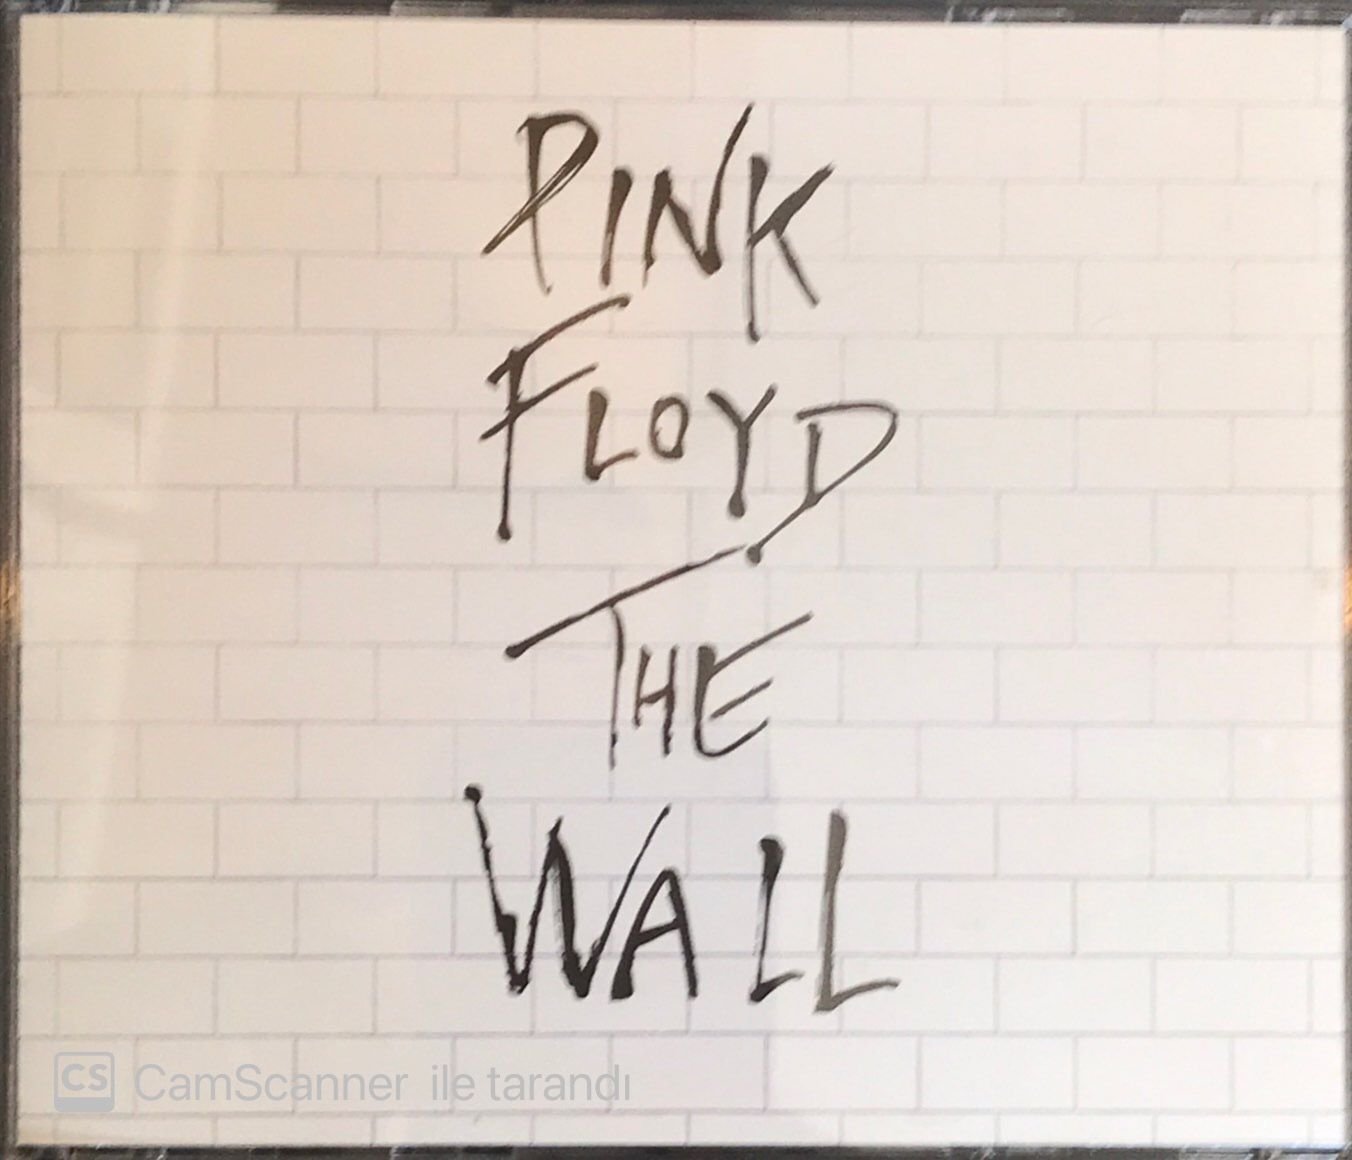 PINK
FLOYD
THE
WALL
CS CamScanner ile tarandı